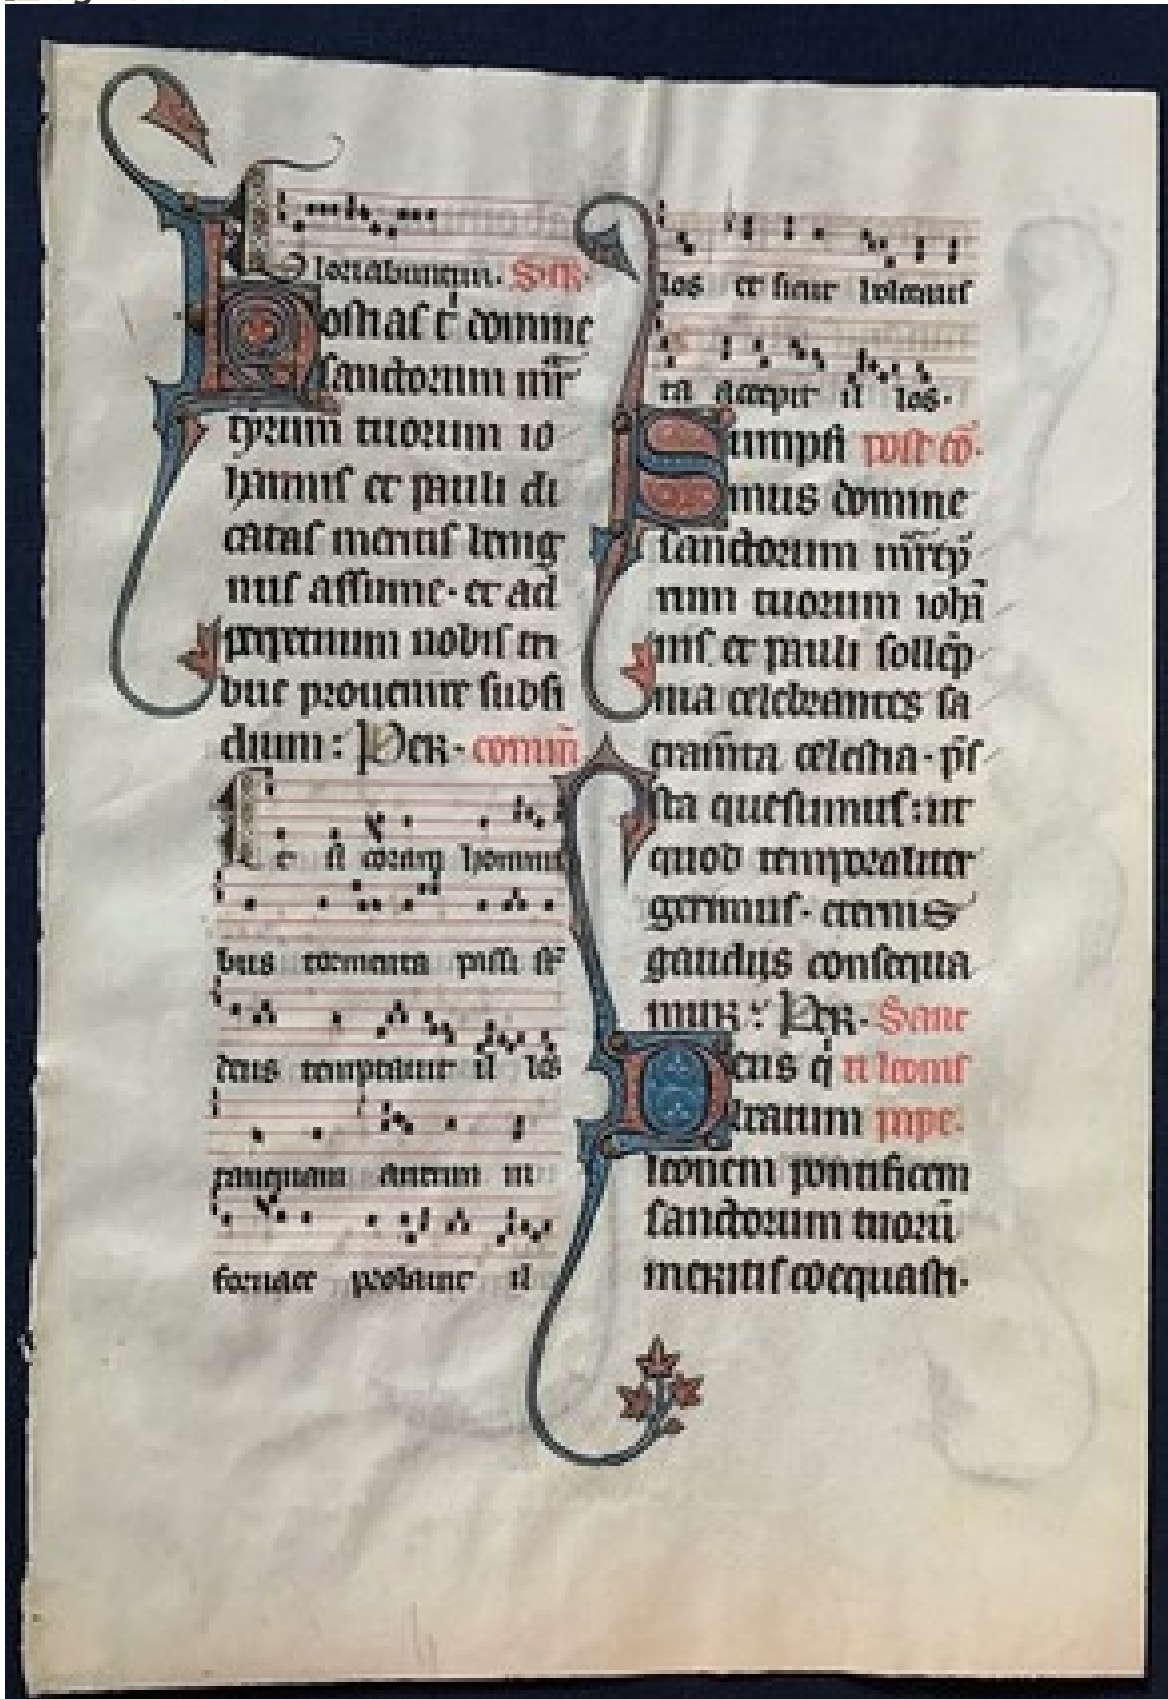 Gloriabuntur. Secr.
Hostias t' domine
sanctorum mr̄
tyrum tuorum io
hannis et pauli di
catas meritis benig
nus assume. et ad
perpetuum nobis tri
bue provenire subsi
dium: Per. comm̄
Et si coram homini
bus tormenta passi st̄
deus temptavit il los
tanquam aurum in
fornace probavit il
los et sicut holocaus
ta accepit il los.
Sumpsi post cō.
mus domine
sanctorum mr̄ty
rum tuorum ioh̄n
nis et pauli sollēp
nia celebrantes sa
cram̄ta celestia. p̄s
ta quesumus: ut
quod temporaliter
gerimus. eternis
gaudiis consequa
mur: Per. Sanc
Deus q' ti leonis
beatum pape.
leonem pontificem
sanctorum tuorū
meritis coequasti.